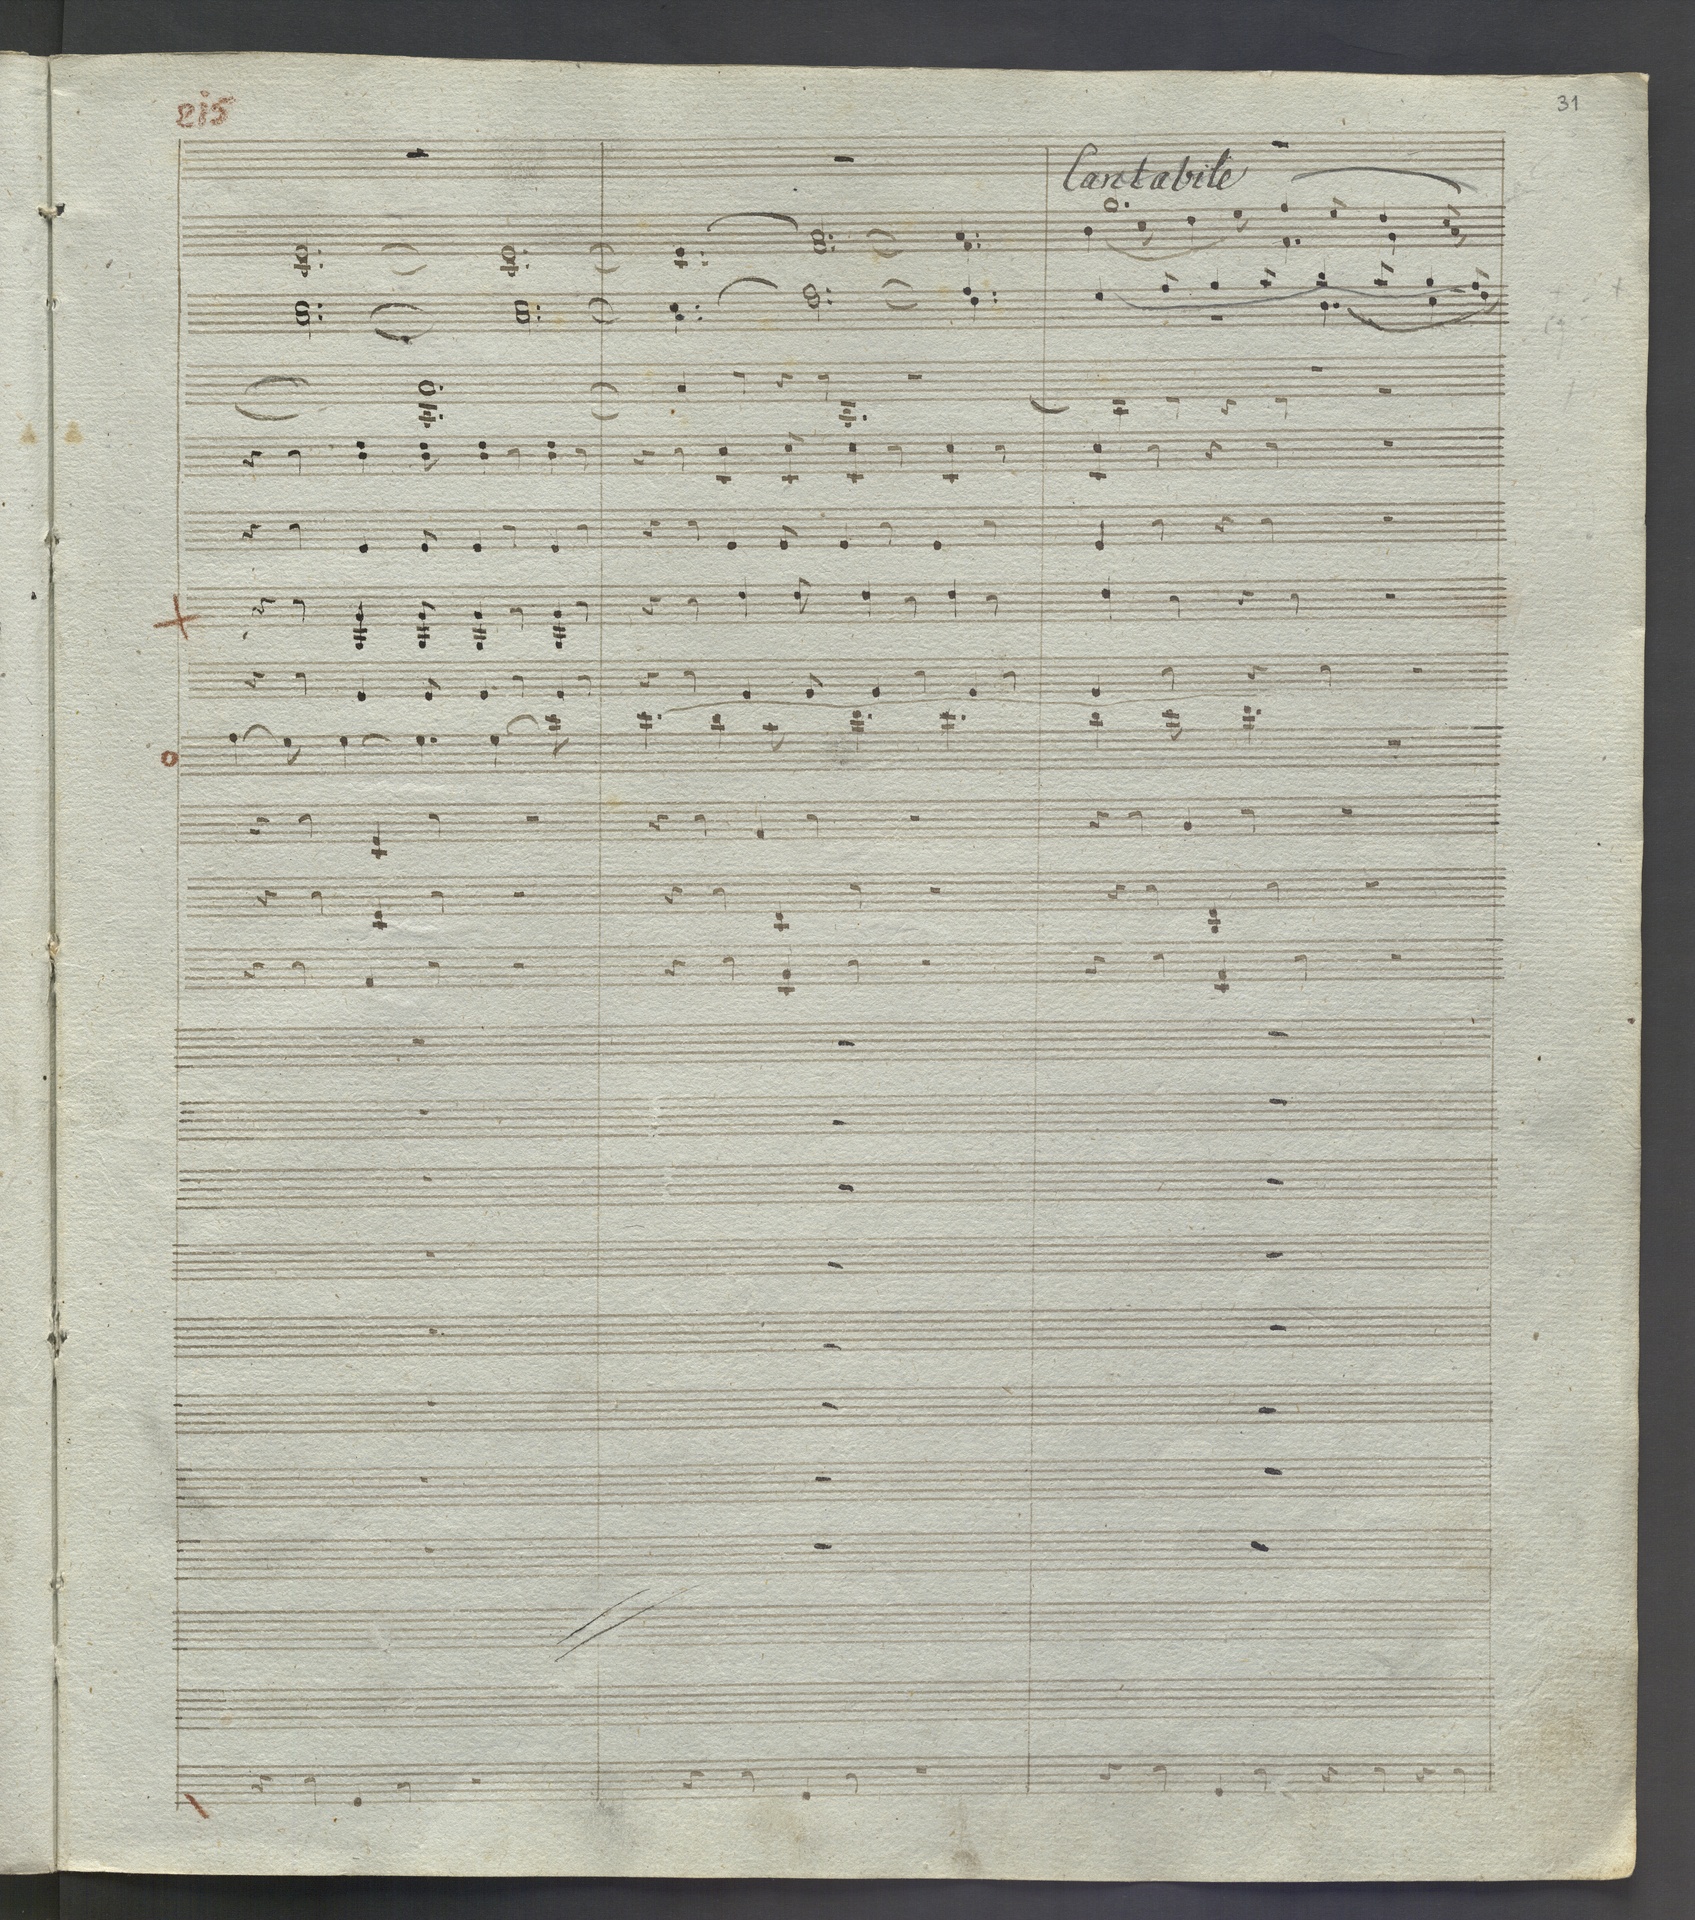 215
31
Cantabile